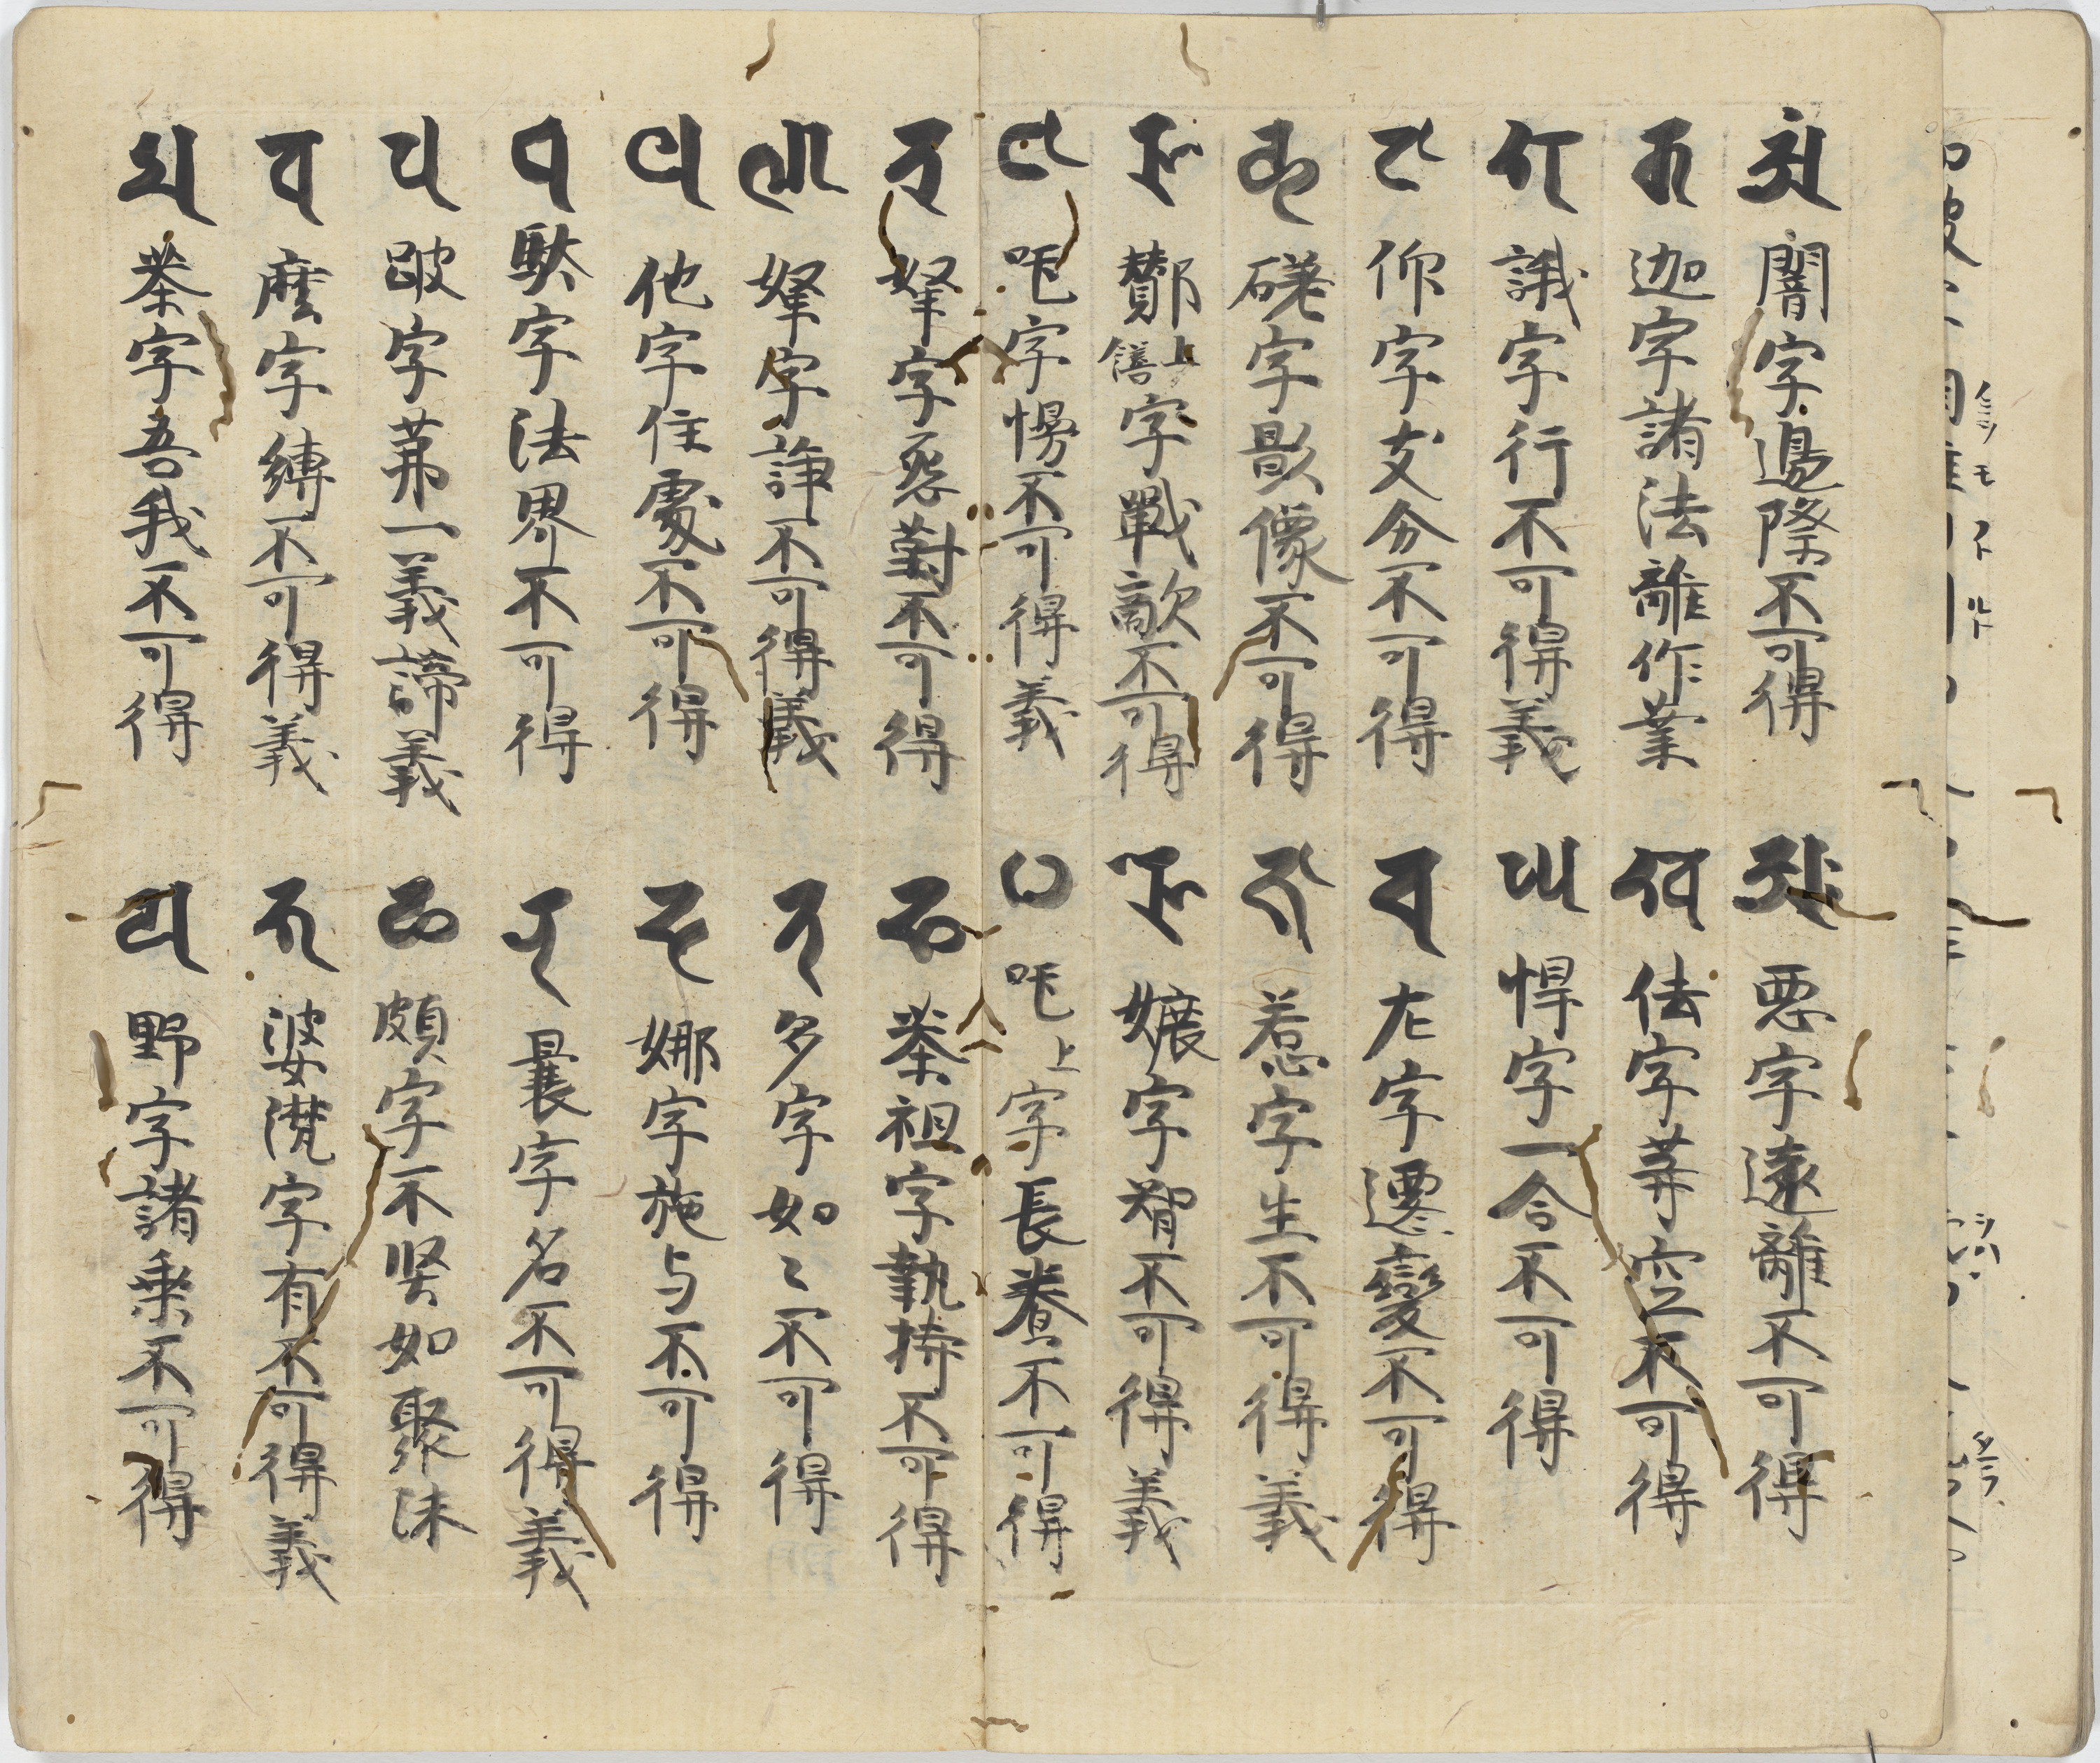 𑖀𑖽 闇字邊際不可得 𑖀𑖾 惡字遠離不可得
𑖎 迦字諸法離作業 𑖏 佉字等空不可得
𑖐 誐字行不可得義 𑖑 悍字一合不可得
𑖒 仰字支分不可得 𑖓 左字遷變不可得
𑖔 磋字影像不可得 𑖕 惹字生不可得義
𑖖 酇上饍字戰敵不可得 𑖗 孃字智不可得義
𑖘 吒字慢不可得義 𑖙 吒上字長養不可得
𑖚 拏字怨對不可得 𑖛 荼祖字執持不可得
𑖜 拏字諍不可得義 𑖝 多字如〻不可得
𑖞 他字住處不可得 𑖟 娜字施与不可得
𑖠 馱字法界不可得 𑖡 曩字名不可得義
𑖢 跛字第一義諦義 𑖣 頗字不堅如聚沫
𑖤 麼字縛不可得義 𑖥 婆字有不可得義
𑖦 莽字吾我不可得 𑖧 野字諸乘不可得